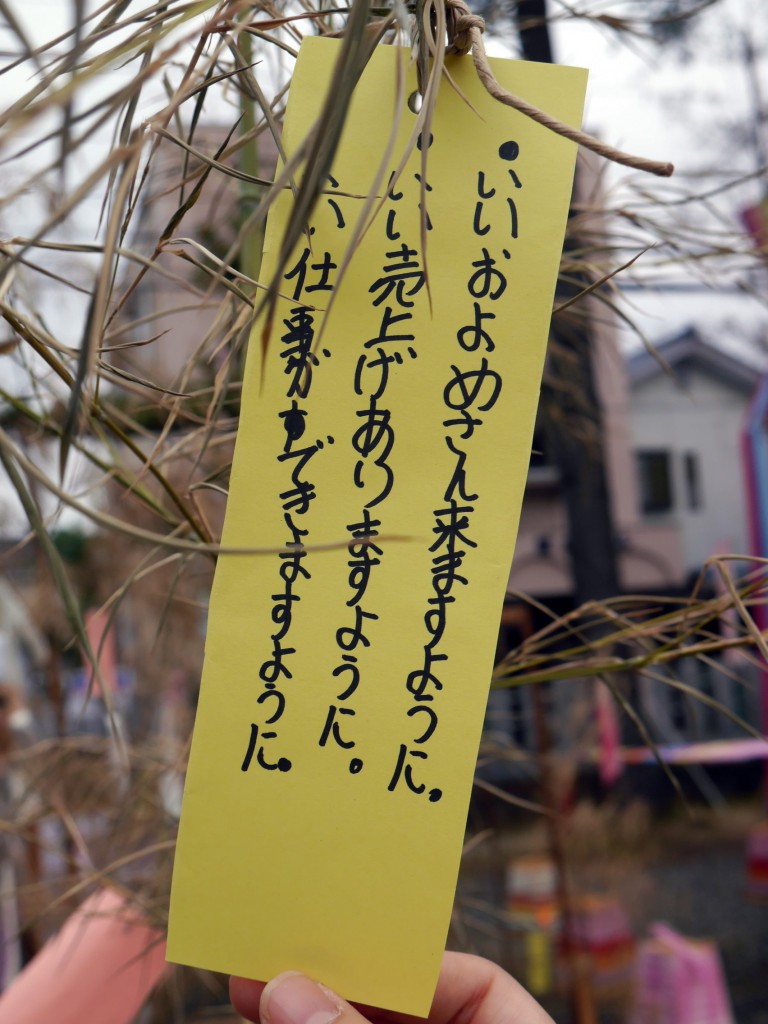 ・いいおよめさん来ますように。
・いい売上げありますように。
い仕事ができますように。